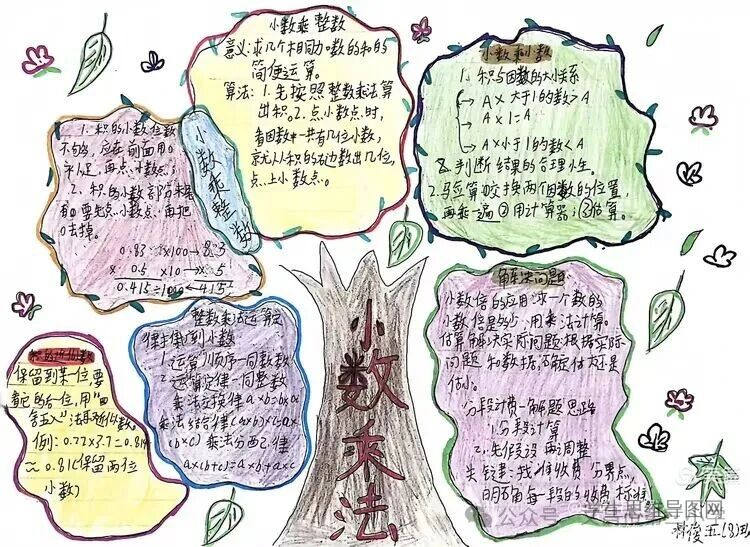 小数乘整数
意义:求几个相同加数的和的
简便运算。
算法:1.先按照整数乘法算
出积。2.点小数点时,
看因数中一共有几位小数,
就从积的右边数出几位,
点上小数点。
小数乘小数
1、积与因数的大小关系
A×大于1的数>A
A×1=A
A×小于1的数<A
判断结果的合理性。
2.验算交换两个因数的位置
再乘一遍②用计算器③估算。
1.积的小数位数
不够,应在前面用0
补足,再点小数点;
2、积的小数部分末尾
有0要先点小数点,再把
0去掉。
0.83 ×100→ 83
× 0.5 ×10→× 5
0.415 ÷1000←415
小数乘整数
整数乘法运算定
律推广到小数
1.运算顺序一同数数
2.运算定律一同整数
乘法交换律a×b=b×a
乘法结合律(a×b)×c=a×
(b×c) 乘法分配律
a×(b+c)=a×b+a×c
保留到某位要
看它的后位,用"四
舍五入"法取近似数。
例:0.77×7.7=0.814
≈0.81(保留两位
小数)
小数乘法
解决问题
小数倍的应用:求一个数的
小数倍是多少,用乘法计算。
估算解决实际问题:根据实际
问题和数据,确定估大还是
估小。
分段计费一解题思路
1.分段计算
2.先假设再调整
关键:找准收费分界点,
明确每一段的收费标准
公众号
学告思维导图网
五.(8)班